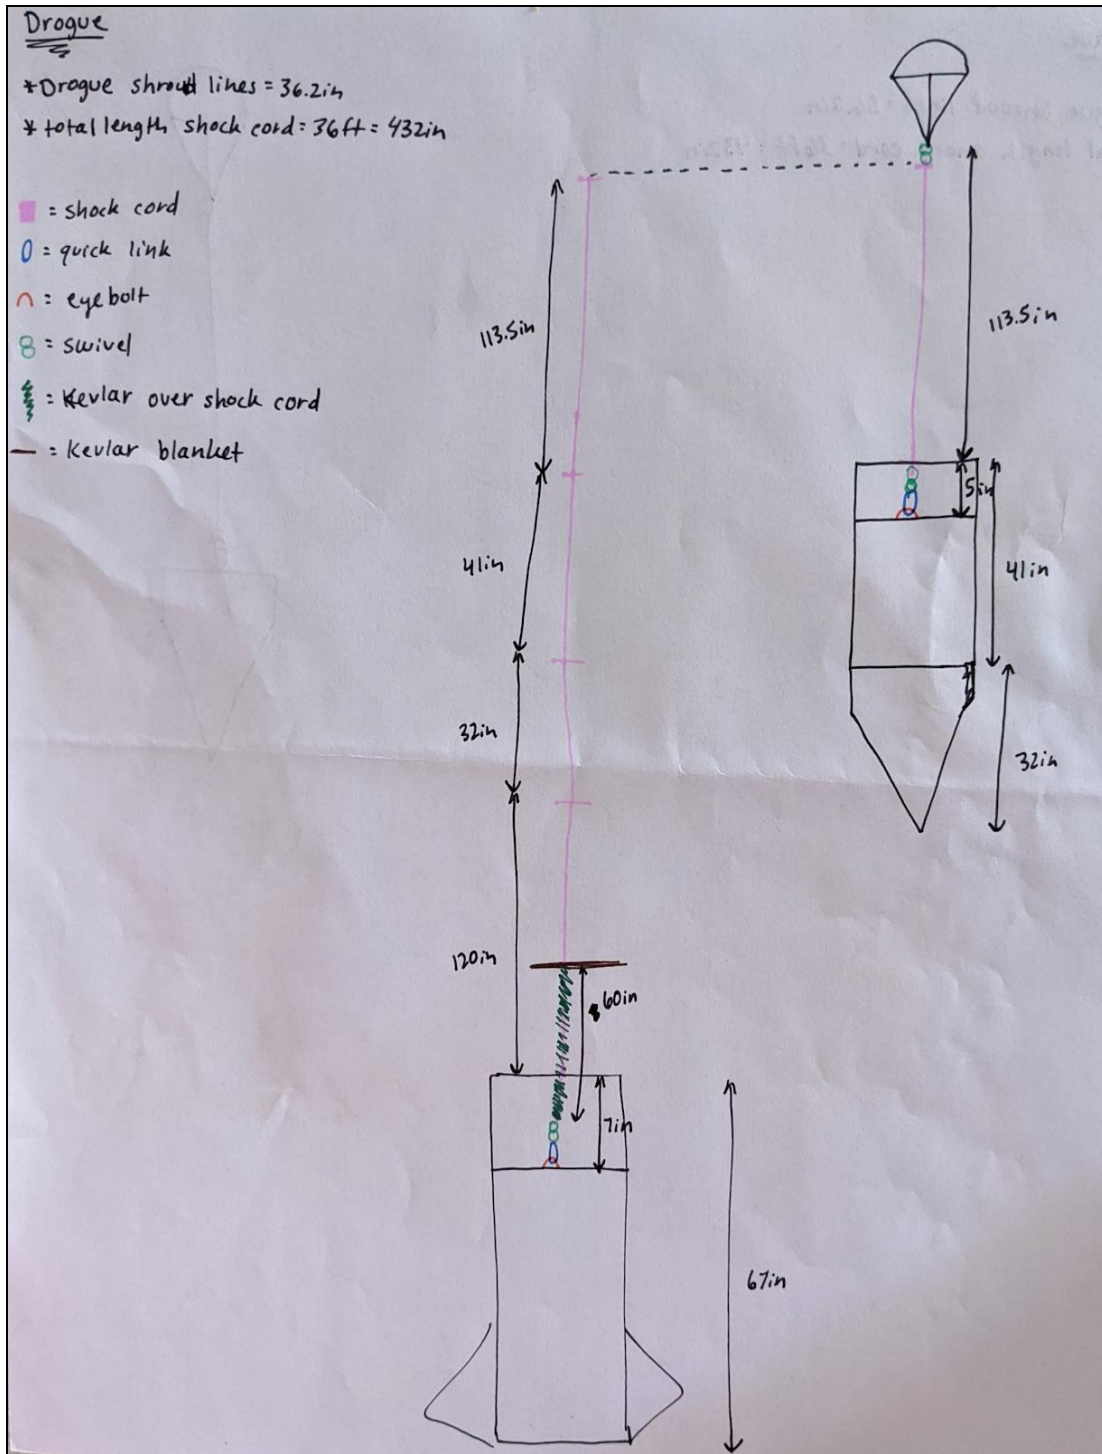 Drogue
*Drogue shroud lines = 36.2in
* total length shock cord: 36ft = 432in
= shock cord
= quick link
= eyebolt
= swivel
= Kevlar over shock cord
= Kevlar blanket
113.5in
113.5in
5in
41in
41in
32in
32in
120in
60in
7in
67in